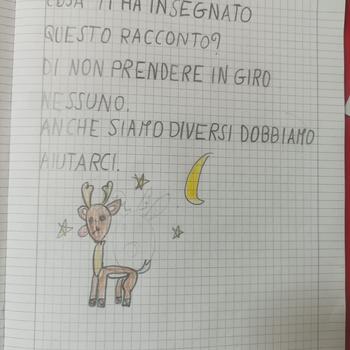 COSA TI HA INSEGNATO
QUESTO RACCONTO?
DI NON PRENDERE IN GIRO
NESSUNO.
ANCHE SIAMO DIVERSI DOBBIAMO
AIUTARCI.